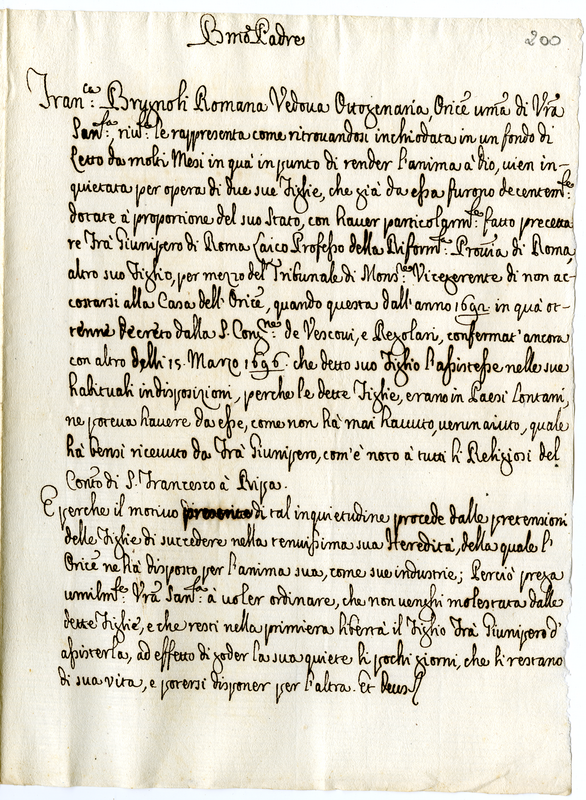 Bmo Padre
200
Franca: Brugnoli Romana Vedova Ottogenaria, Orice umã di Vrã
Santa, riute le rappresenta come ritrovandosi inchiodata in un fondo di
Letto da molti Mesi in quà in punto di render l'anima à Dio, vien in-
quietata per opera di due sue Figlie, che già da essa furono decentemte:
dotate à proportione del suo Stato, con haver particolarmte: fatto precetta
re Frà Giunipero di Roma Laico Professo della Riforma: Provia di Roma,
altro suo Figlio, per mezzo del Tribunale di Monsre Vicegerente di non ac-
costarsi alla Casa dell'Orice, quando questa dall'anno 1692 in quà ot-
tenne decreto dalla S. Congne de Vescovi, e Regolari, confermat'ancora
con altro delli 15. Marzo 1696. che detto suo Figlio l'assistesse nelle sue
habituali indisposizioni, perche le dette Figlie, erano in Paesi Lontani,
ne poteva havere da esse, come non hà mai havuto, verun aiuto, quale
hà bensì ricevuto da Frà Giunipero, com'è noto à tutti li Religiosi del
Convto di S. Francesco à Ripa.
E perche il motivo di tal inquietudine procede dalle pretensioni
delle Figlie di succedere nella tenuissima sua Heredità, della quale l'
Orice ne hà disposto per l'anima sua, come sue industrie; Perciò prega
umilmte: Vrã Santa: à voler ordinare, che non venghi molestata dalle
dette Figlie, e che resti nella primiera libertà il Figlio Frà Giunipero d'
assisterla, ad effetto di goder la sua quiete li pochi giorni, che li restano
di sua vita, e potersi disponer per l'altra. Et Deus